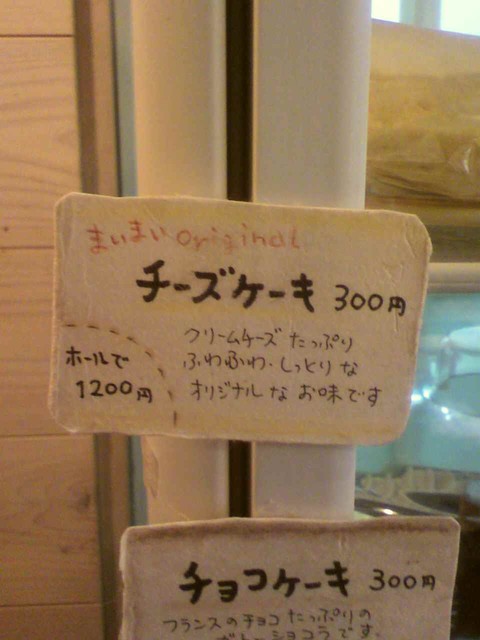 まいまい original
チーズケーキ 300円
クリームチーズ たっぷり
ふわふわ・しっとり な
オリジナル な お味です
ホールで
1200円
チョコケーキ 300円
フランスのチョコ たっぷりの
ガトーショコラです